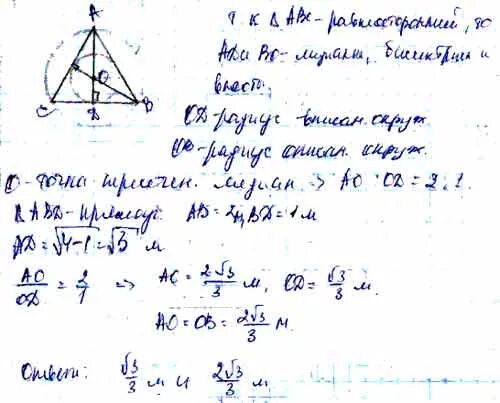 A
O
C D B
Т.к Δ ABC - равносторонний, то
AD и BO - медианы, биссектрисы и
высоты.
OD - радиус вписан. окруж.
OB - радиус описан. окруж.
O - точка пресечен. медиан => AO : OD = 2 : 1.
Δ ABD - прямоуг. AB = 2м, BD = 1 м
AD = √4-1 = √3 м
AO/OD = 2/1 => AO = 2√3/3 м, OD = √3/3 м.
AO = OB = 2√3/3 м.
Ответ: √3/3 м и 2√3/3 м